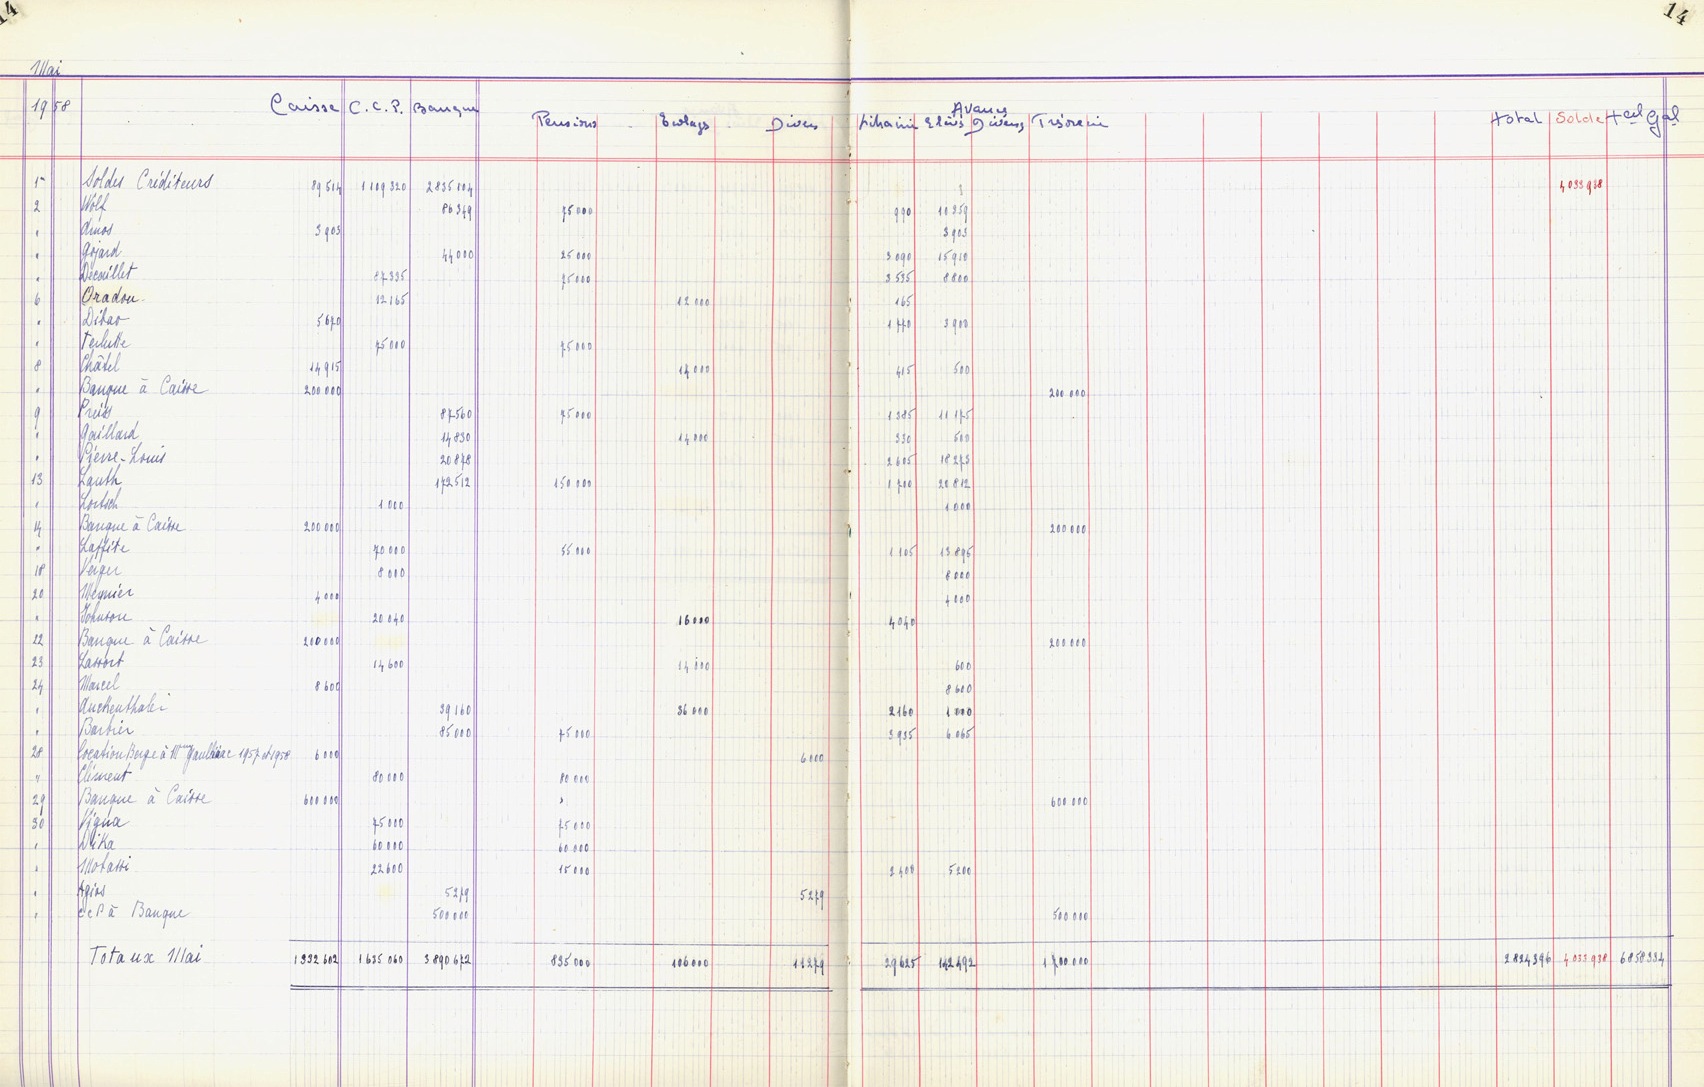 14 14
Mai
1958 Caisse C.C.P. Banque Pensions Ecolages Divers Avances Elèves Divers Trésorerie total Solde
1er Soldes Créditeurs 89514 1109320 2835104 4033938
2 Wolf 86349 75000 990 10359
" 3903 3903
" Gojard 44000 25000 3090 15910
" Decoillet 87335 75000 3535 8800
6 Oradou 12165 12000 165
" Dibao 5670 1770 3900
" 75000 75000
8 Châtel 14915 14000 415 500
" Banque à Caisse 200000 200000
9 Preiss 87560 75000 1385 11175
" Gaillard 14830 14000 330 500
" Pierre-Louis 20878 2605 18273
13 Lauth 172512 150000 1700 20812
" Loetsch 1000 1000
14 Banque à Caisse 200000 200000
" Laffite 70000 55000 1105 13895
18 Verger 8000 8000
20 Meynier 4000 4000
" Johnson 20040 16000 4040
22 Banque à Caisse 200000 200000
23 Lassort 14600 14000 600
24 Marcel 8600 8600
" Auckenthaler 39160 36000 2160 1000
" Barbier 85000 75000 3935 6065
28 Location Berge à Mme 1957 et 1958 6000 6000
" Clément 80000 80000
29 Banque à Caisse 600000 " 600000
30 Vigna 75000 75000
" Dika 60000 60000
" Motassi 22600 15000 2400 5200
" Agios 5279 5279
" ccP à Banque 500000 500000
Totaux Mai 1332602 1635060 3890672 835000 106000 11279 29625 142492 1700000 2824396 4033938 6858334